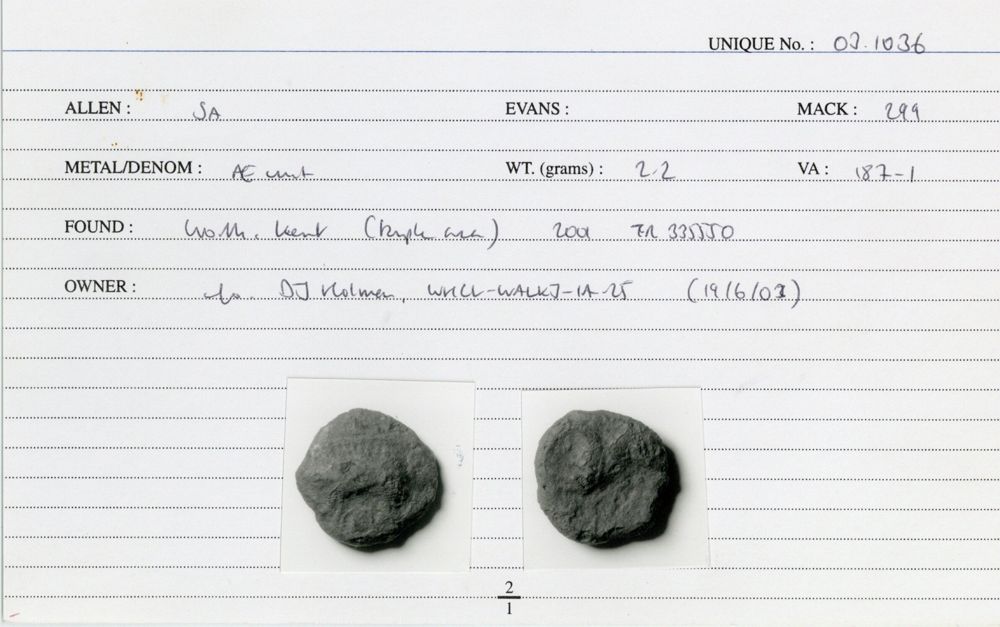 UNIQUE No. : 03.1036
ALLEN : SA EVANS : MACK : 299
METAL/DENOM : Æ unit WT. (grams) : 2.2 VA : 187-1
FOUND : North Kent ( area) 2001 TR 335550
OWNER : DJ Holman, WHCL-WALKJ-IA-25 (19/6/03)
2
1